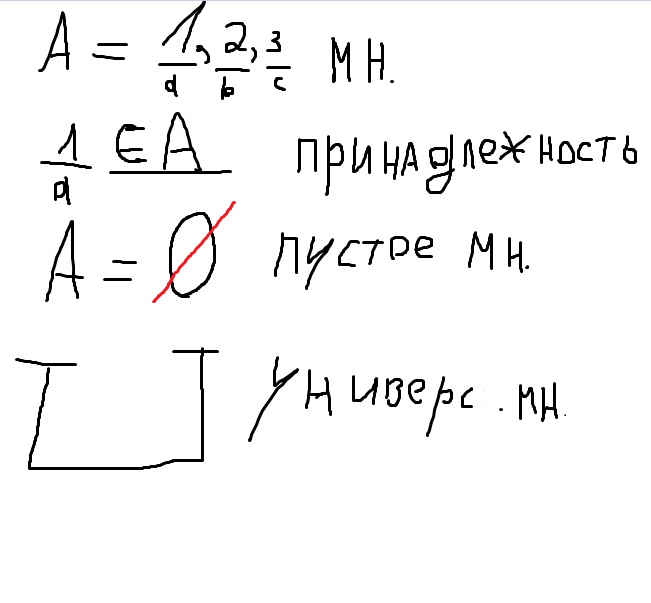 A = 1/a, 2/b, 3/c МН.
1/a ∈ A ПРИНАДЛЕЖНОСТЬ
A = ∅ ПУСТРЕ МН.
U УНИВЕРС. МН.